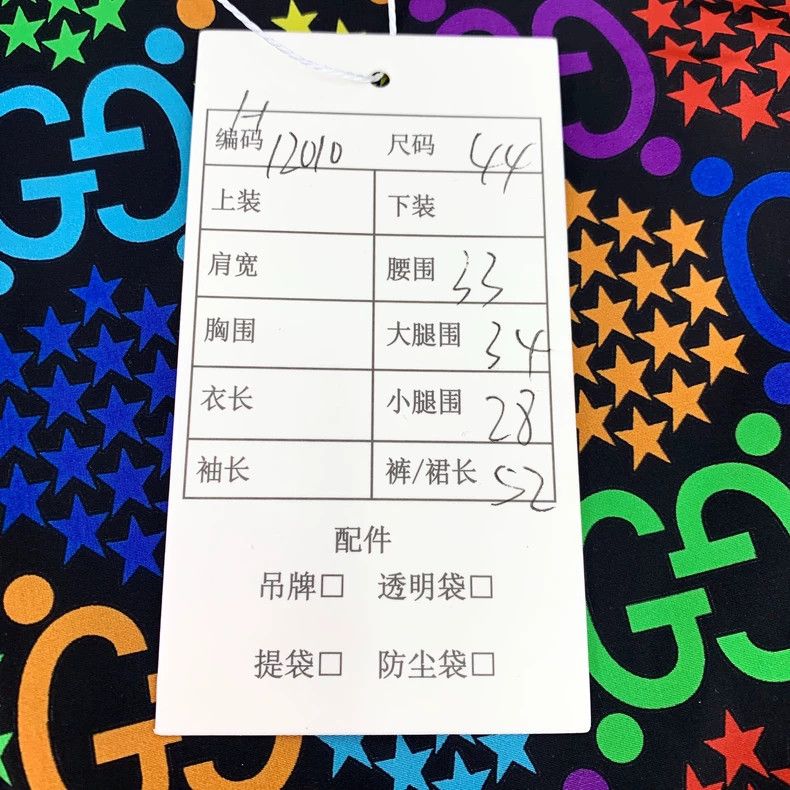 编码 H12010 尺码 44
上装 下装
肩宽 腰围 33
胸围 大腿围 34
衣长 小腿围 28
袖长 裤/裙长 52
配件
吊牌□ 透明袋□
提袋□ 防尘袋□